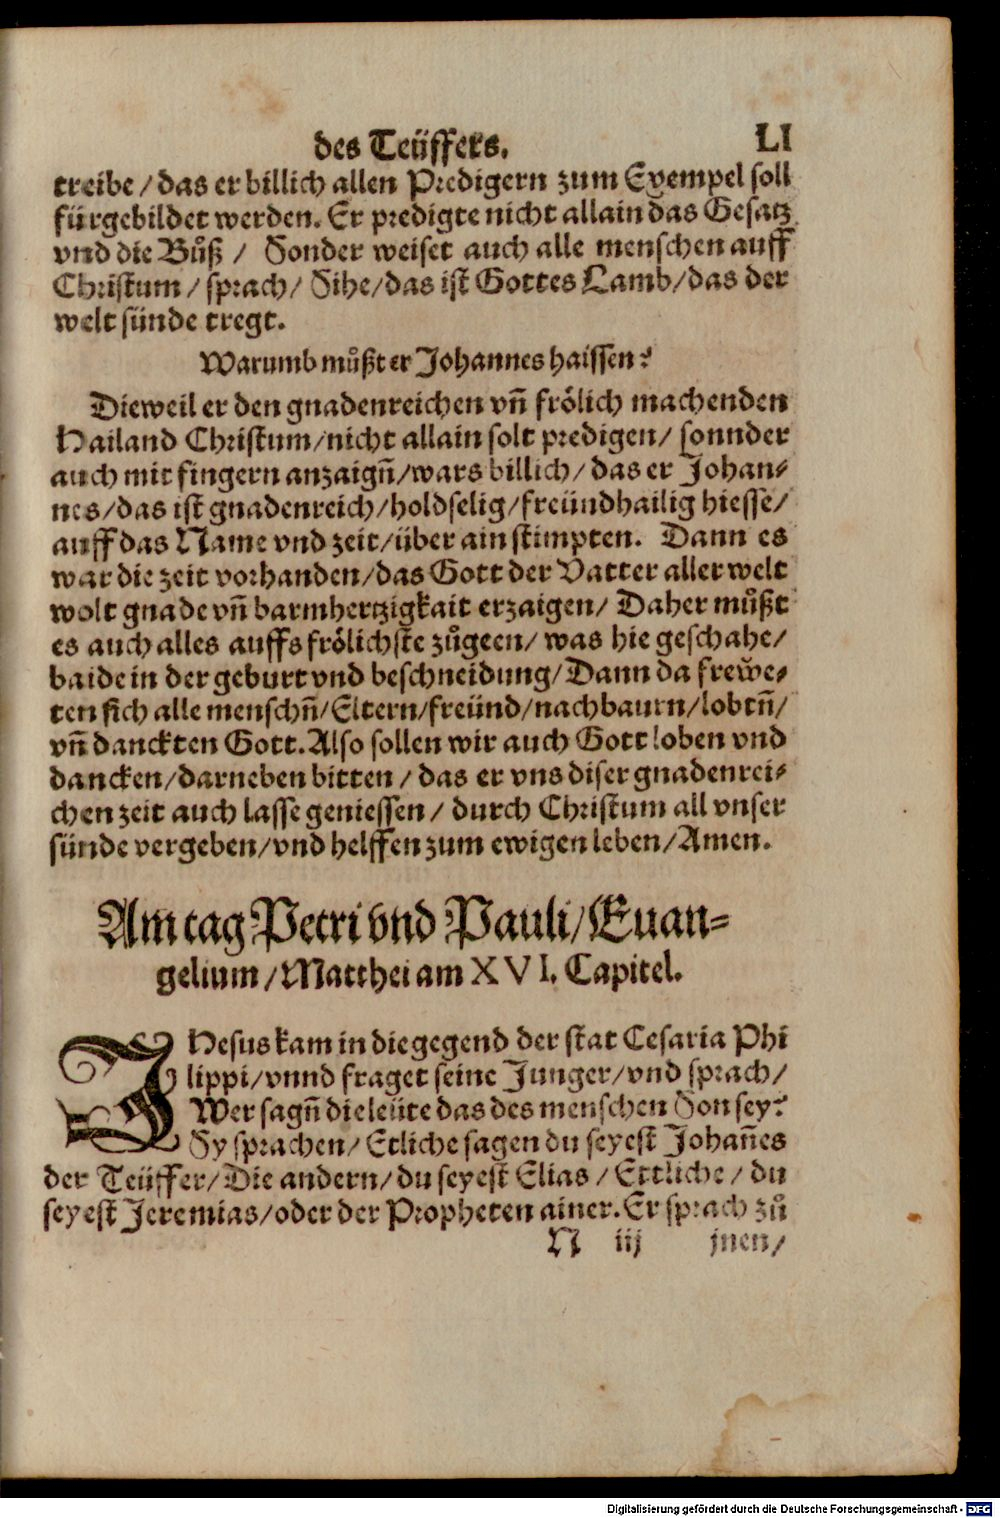 des Teüffers. LI
treibe/das er billich allen Predigern zum Exempel soll
fürgebildet werden. Er predigte nicht allain das Gesatz
vnd die Bůß / Sonder weiset auch alle menschen auff
Christum/sprach/Sihe/das ist Gottes Lamb/das der
welt sünde tregt.
Warumb můßt er Johannes haissen?
Dieweil er den gnadenreichen vñ frölich machenden
Hailand Christum/nicht allain solt predigen/ sonnder
auch mit fingern anzaigñ/wars billich/das er Johan-
nes/das ist gnadenreich/holdselig/freündhailig hiesse/
auff das Name vnd zeit/über ain stimpten. Dann es
war die zeit vorhanden/das Gott der Vatter aller welt
wolt gnade vñ barmhertzigkait erzaigen/ Daher můßt
es auch alles auffs frölichste zůgeen/ was hie geschahe/
baide in der geburt vnd beschneidung/Dann da frewe-
ten sich alle menschñ/Eltern/freünd/nachbaurn/lobtñ/
vñ danckten Gott. Also sollen wir auch Gott loben vnd
dancken/darneben bitten/das er vns diser gnadenrei-
chen zeit auch lasse geniessen/ durch Christum all vnser
sünde vergeben/vnd helffen zum ewigen leben/Amen.
Am tag Petri vnd Pauli/Euan-
gelium/Matthei am XVI. Capitel.
JHesus kam in die gegend der stat Cesaria Phi
lippi/vnnd fraget seine Junger/vnd sprach/
Wer sagñ die leüte das des menschen Son sey?
Sy sprachen/ Etliche sagen du seyest Johañes
der Teüffer/Die andern/du seyest Elias/Ettliche/du
seyest Jeremias/oder der Propheten ainer. Er sprach zů
N iij jnen/
Digitalisierung gefördert durch die Deutsche Forschungsgemeinschaft - DFG